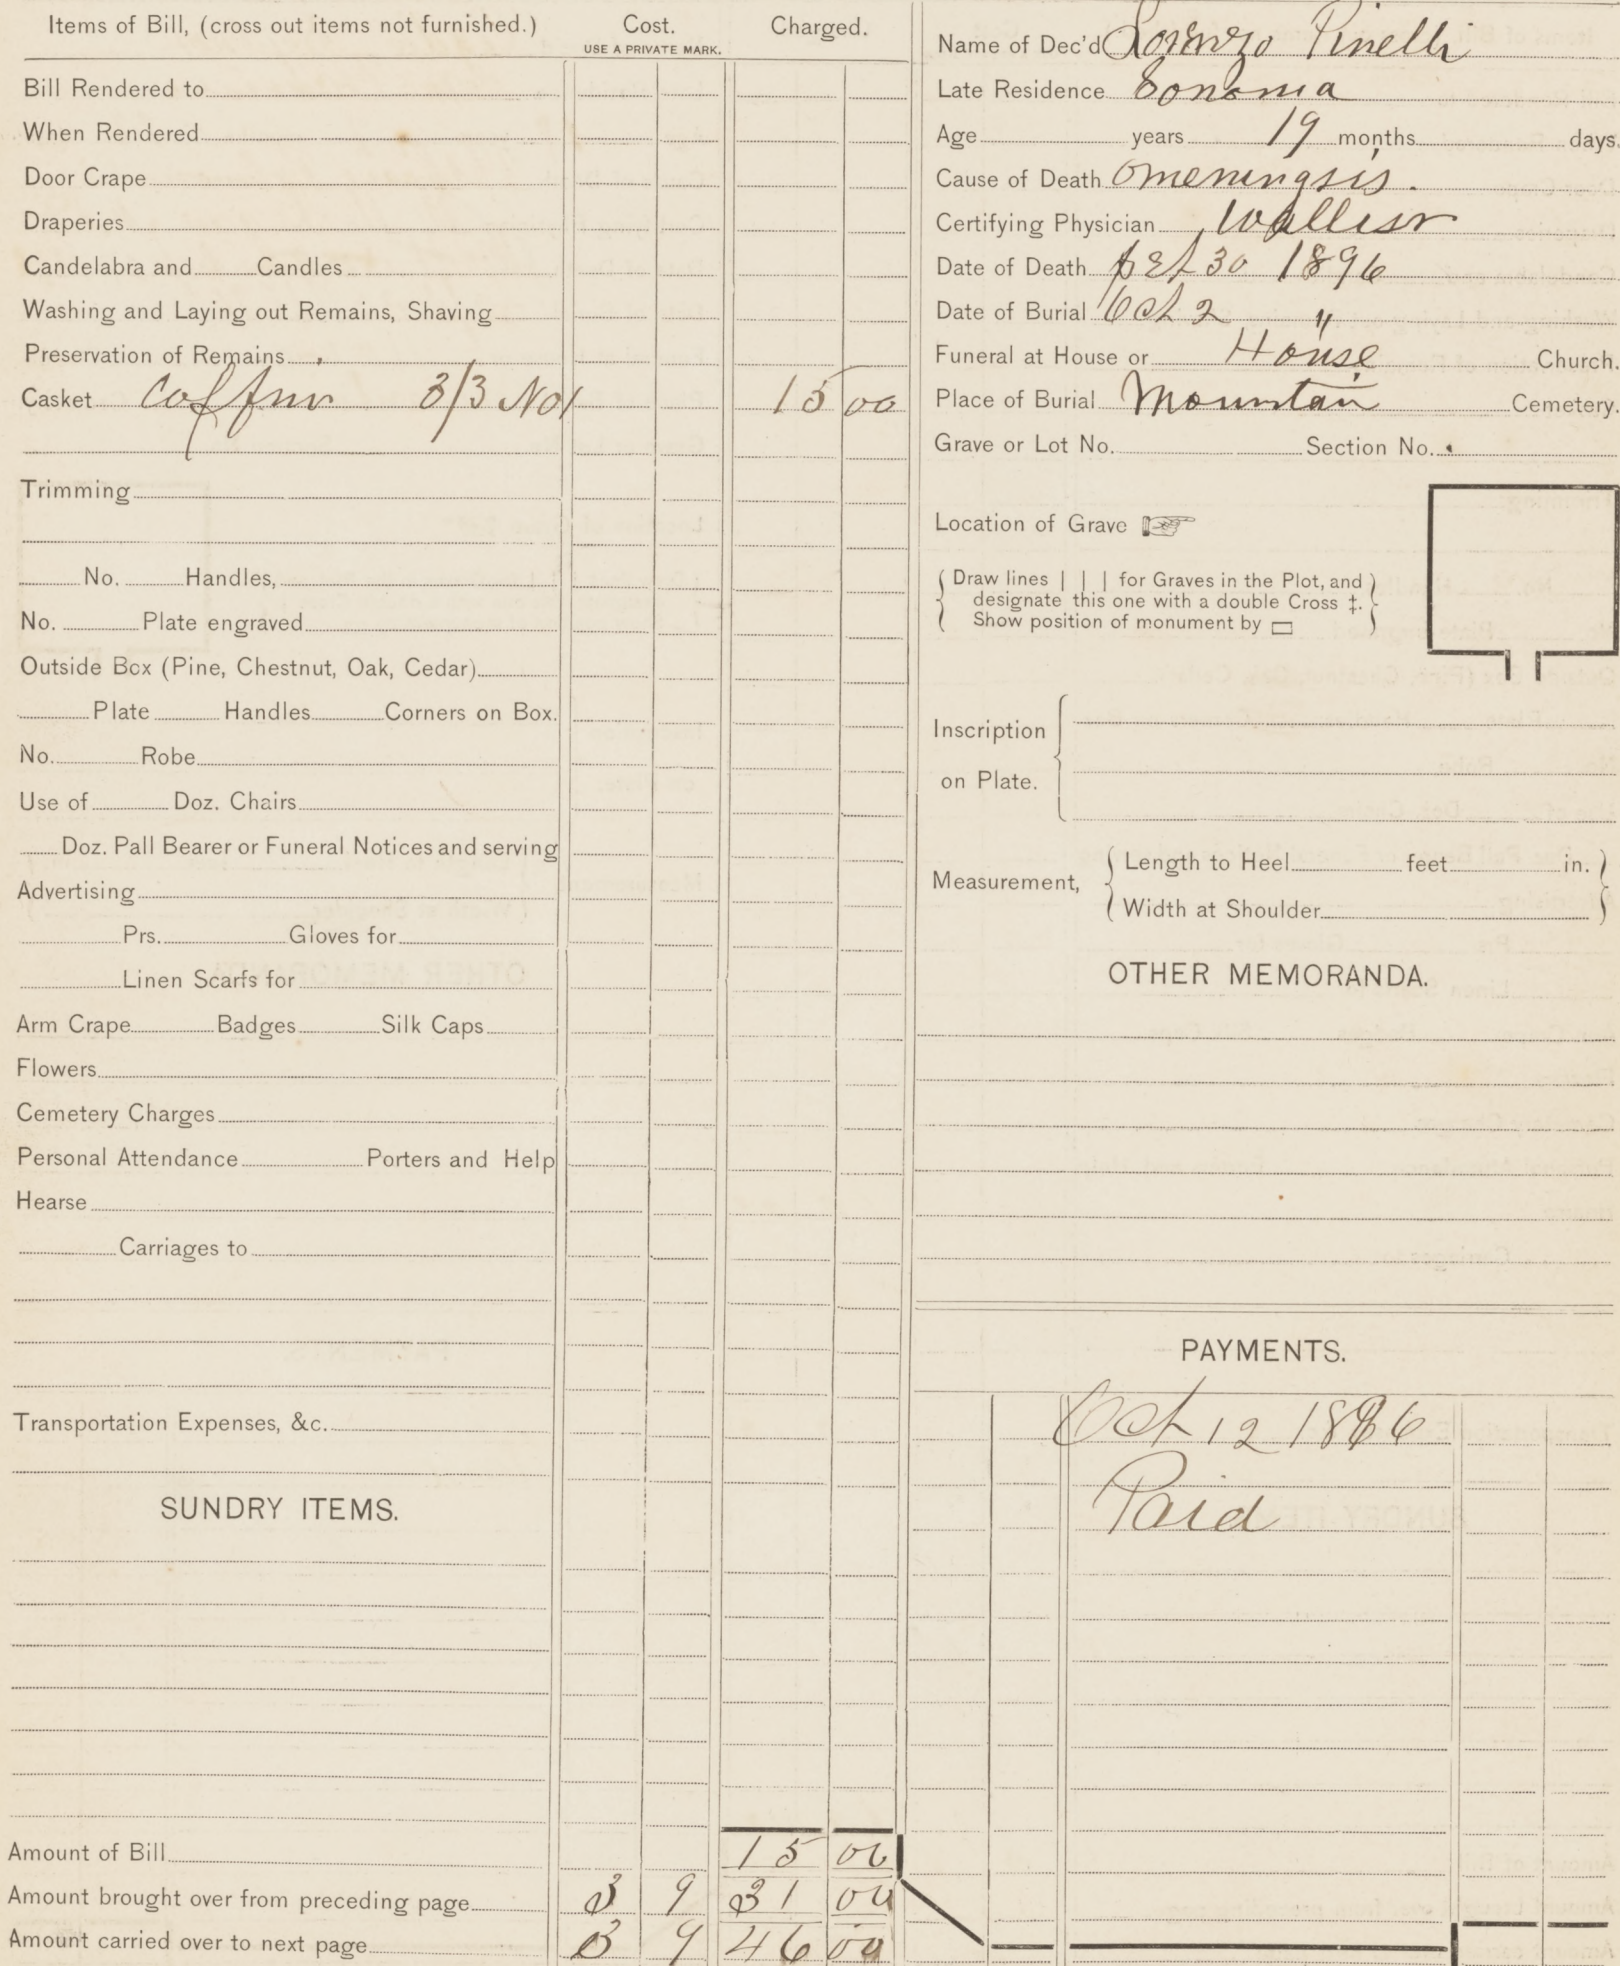 Items of Bill, (cross out items not furnished.) Cost. Charged.
USE A PRIVATE MARK.
Bill Rendered to
When Rendered
Door Crape
Draperies
Candelabra and Candles
Washing and Laying out Remains, Shaving
Preservation of Remains
Casket Coffin 3/3 No1 15 00
Trimming
No. Handles,
No. Plate engraved
Outside Box (Pine, Chestnut, Oak, Cedar)
Plate Handles Corners on Box.
No. Robe
Use of Doz. Chairs
Doz. Pall Bearer or Funeral Notices and serving
Advertising
Prs. Gloves for
Linen Scarfs for
Arm Crape Badges Silk Caps
Flowers
Cemetery Charges
Personal Attendance Porters and Help
Hearse
Carriages to
Transportation Expenses, &c.
SUNDRY ITEMS.
Amount of Bill 15 00
Amount brought over from preceding page 3 9 31 00
Amount carried over to next page 3 9 46 00
Name of Dec'd Lorenzo Pinelli
Late Residence Sonoma
Age years 19 months days.
Cause of Death
Certifying Physician
Date of Death 30 1896
Date of Burial Oct 2 "
Funeral at House or House Church.
Place of Burial Mountain Cemetery.
Grave or Lot No. Section No.
Location of Grave
Draw lines | | | for Graves in the Plot, and
designate this one with a double Cross ‡.
Show position of monument by ▭
Inscription
on Plate.
Measurement,
Length to Heel feet in.
Width at Shoulder
OTHER MEMORANDA.
PAYMENTS.
Oct 12 1896
Paid